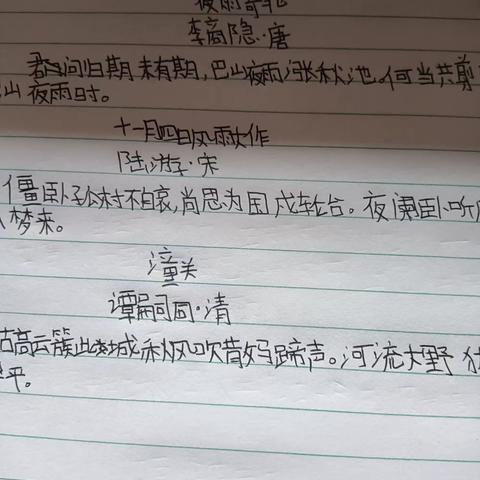 夜雨寄北
李商隐·唐
君问归期未有期,巴山夜雨涨秋池。何当共剪
山夜雨时。
十一月四日风雨大作
陆游·宋
僵卧孤村不自哀,尚思为国戍轮台。夜阑卧听
梦来。
潼关
谭嗣同·清
古高云簇此城,秋风吹散马蹄声。河流大野犹
平。